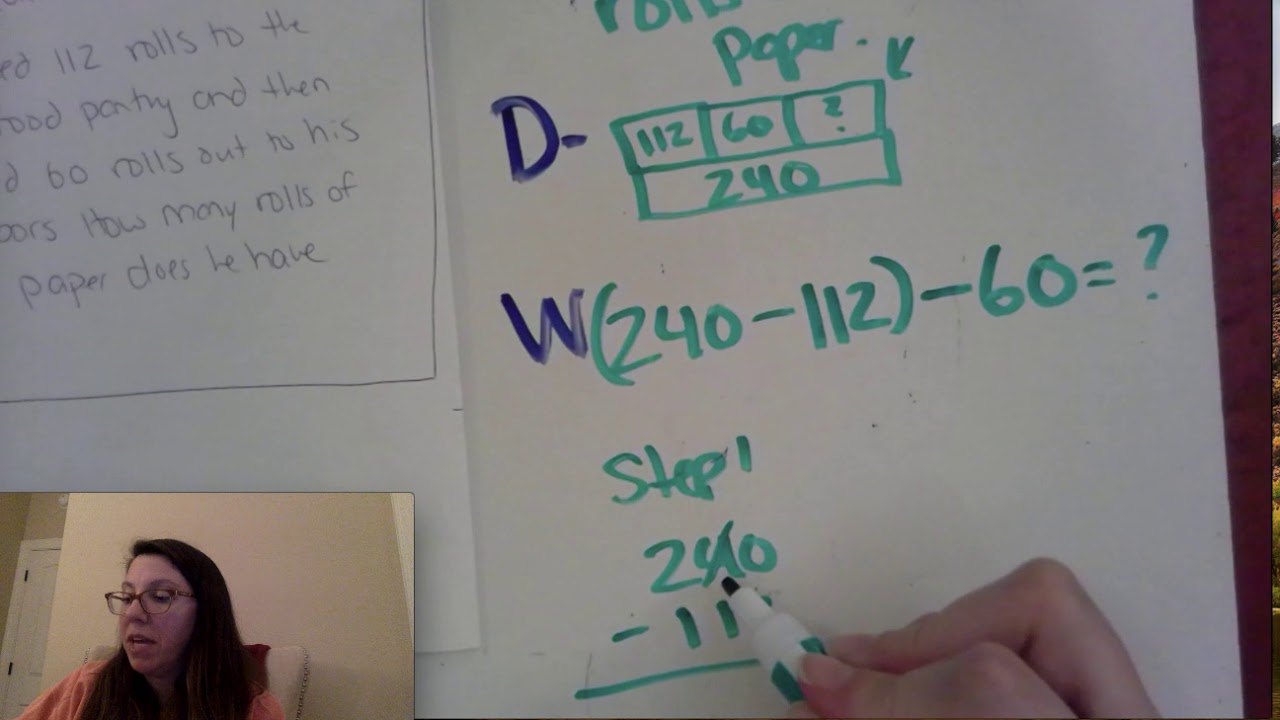 112 rolls to the
food pantry and then
60 rolls out to his
How many rolls of
paper does he have
rolls
paper.
D-
112 60 ?
240
W(240-112)-60=?
Step 1
240
-11